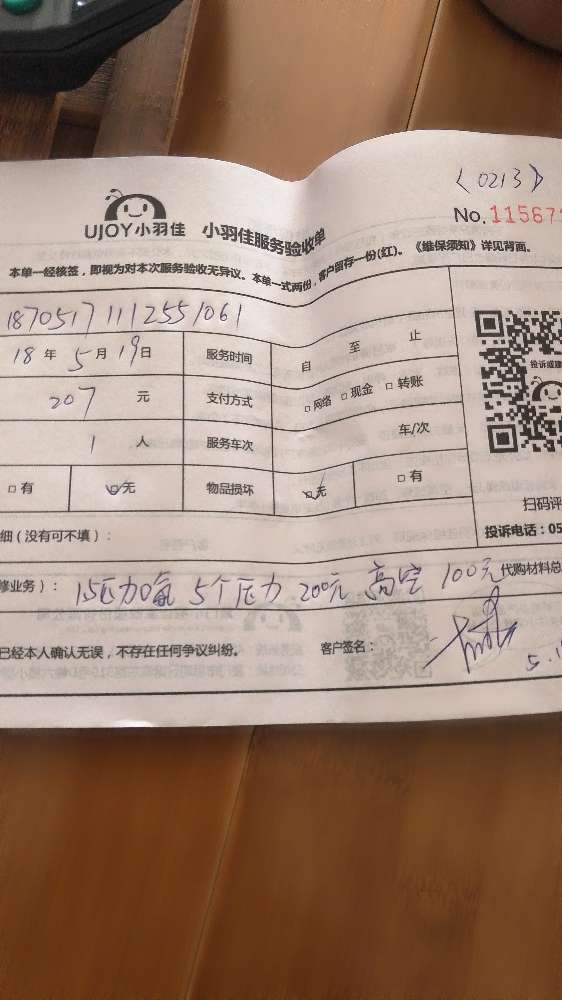 〈0213〉
UJOY小羽佳 小羽佳服务验收单 No.11567
本单一经核签，即视为对本次服务验收无异议。本单一式两份，客户留存一份(红)。《维保须知》详见背面。
18705171112551061
18年5月19日 服务时间 自 至 止
207 元 支付方式 □网络 □现金 □转账
投诉或建
1 人 服务车次 车/次
□有 □无 物品损坏 □无 □有
扫码评
细（没有可不填）： 投诉电话：05
修业务）： 15压力 5个压力 200元 高空 100元 代购材料总
已经本人确认无误，不存在任何争议纠纷。 客户签名：
5.1